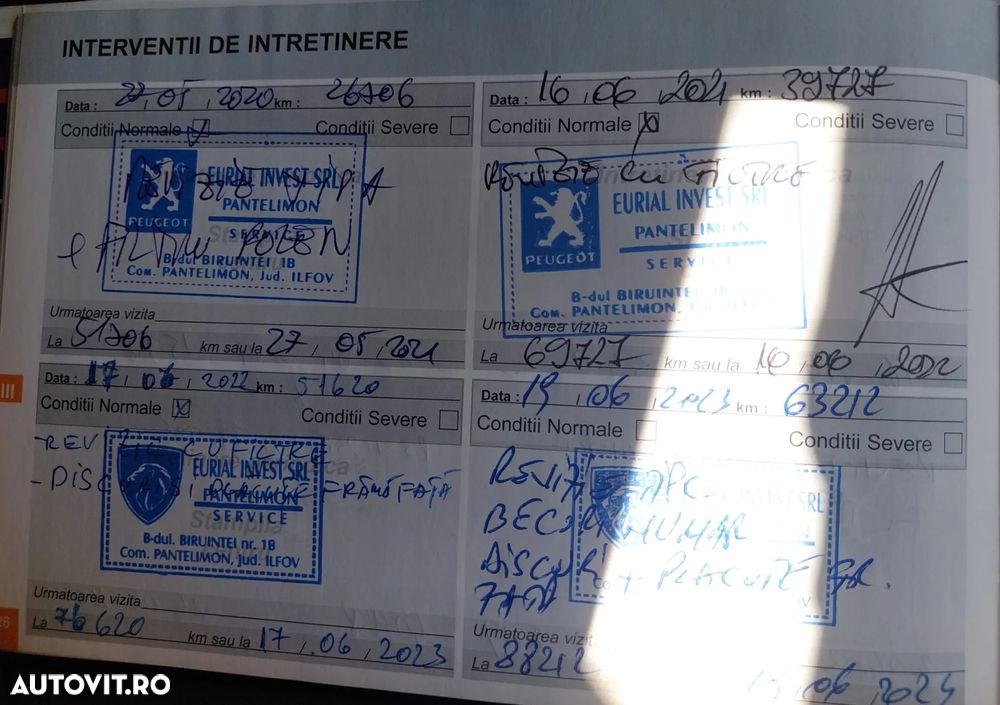 INTERVENTII DE INTRETINERE
Data : 27, 05, 2020 km : 26706
Conditii Normale Conditii Severe
PEUGEOT
EURIAL INVEST SRL
PANTELIMON
SERVICE
B-dul BIRUINTEI 1B
Com. PANTELIMON, Jud. ILFOV
+ FILTRU POLEN
Urmatoarea vizita
La 51706 km sau la 27, 05, 2021
Data : 16, 06, 2021 km : 39727
Conditii Normale Conditii Severe
REVIZIE CU FILTRE
PEUGEOT
EURIAL INVEST SRL
PANTELIMON
SERVICE
B-dul BIRUINTEI 1B
Com. PANTELIMON,
Urmatoarea vizita
La 69727 km sau la 16, 06, 2022
Data : 17, 2022 km : 51620
Conditii Normale Conditii Severe
-REVIZIE CU FILTRE
- DISCURI SI PLACUTE FRÂNĂ FAȚĂ
EURIAL INVEST SRL
PANTELIMON
SERVICE
Stampila
B-dul. BIRUINTEI nr. 1B
Com. PANTELIMON, Jud. ILFOV
Urmatoarea vizita
La 76620 km sau la 17, 06, 2023
Data : 19, 06, 2023 km : 63212
Conditii Normale Conditii Severe
REVIZIE
BEC NUMAR
DISCURI + PLACUTE FR.
FATA
Urmatoarea vizit
La 88212 19, 06, 2024
III
26
AUTOVIT.RO